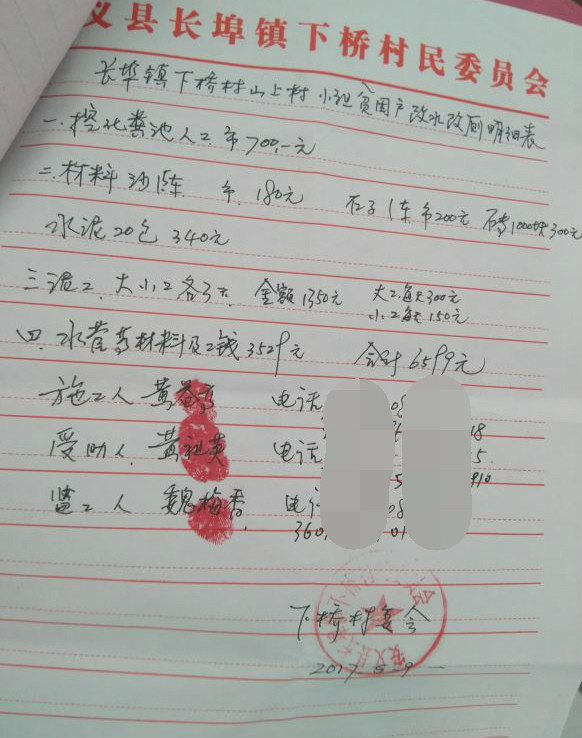 义县长埠镇下桥村民委员会
长埠镇下桥村山上村小组贫困户改水改厕明细表
一.挖化粪池人工币700.-元
二.材料沙1车 币.180元 石子1车币200元 砖1000块300元
水泥20包340元
三.泥工.大小工各3天 金额1350元 大工.每天300元
小工每天150元
四.水管等材料及工钱3529元 合计6599元
施工人 黄 电话 08
18
受助人.黄祖英 电话 5.
5 910
监工人 魏梅香 电话 08
360 01
下桥村委会
2017